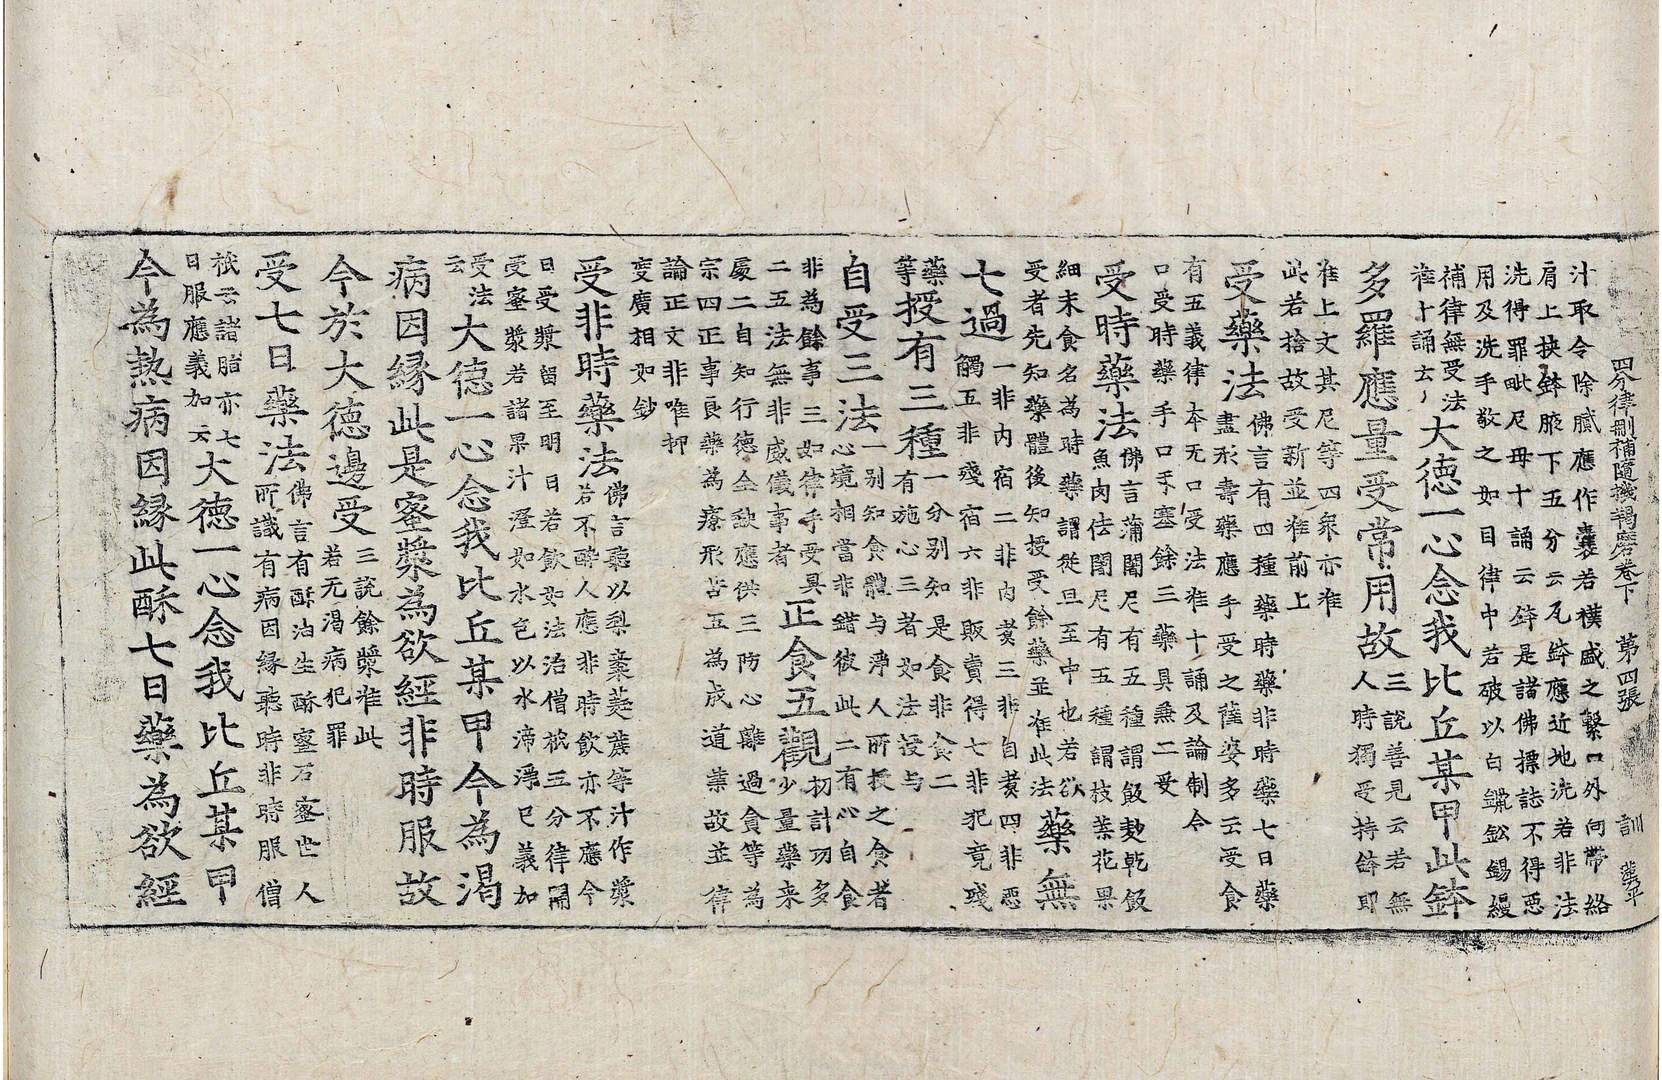 四分律刪補隨機羯磨卷下 第四張 訓
汁取令除膩應作囊若襆盛之繫口外向帶絡
肩上挾鉢腋下五分云瓦鉢應近地洗若非法
洗得罪毗尼母十誦云鉢是諸佛標誌不得惡
用及洗手敬之如目律中若破以白鑞鈆錫縵
補律無受法
准十誦云 大德一心念我比丘某甲此鉢
多羅應量受常用故 三說善見云若無
人時獨受持鉢即
准上文其尼等四衆亦准
此若捨故受新並准前上
受藥法 佛言有四種藥時藥非時藥七日藥
盡形壽藥應手受之薩婆多云受食
有五義律本无口受法准十誦及論制令
口受時藥手口互塞餘三藥具兼二受
受時藥法 佛言蒲闍尼有五種謂飯麨乾飯
魚肉佉闍尼有五種謂枝葉花果
細末食名為時藥謂從旦至中也若欲
受者先知藥體後知授受餘藥並准此法 藥無
七過 一非内宿二非内煑三非自煑四非惡
觸五非殘宿六非販賣得七非犯竟殘
藥
等 授有三種 一分別知是食非食二
有施心三者如法授与
自受三法 一別知食體与淨人所授之食者
心境相當非錯彼此二有心自食
非為餘事三如律手受具
二五法無非威儀事者 正食五觀 初計功多
少量藥来
處二自知行德全缺應供三防心離過貪等為
宗四正事良藥為療形苦五為成道業故並律
論正文非唯抑
度廣相如鈔
受非時藥法 佛言聽以梨棗蕤蔗等汁作漿
若不醉人應非時飲亦不應今
日受漿留至明日若飲如法治僧祇五分律開
受蜜漿若諸果汁澄如水色以水渧淨已義加
受法
云 大德一心念我比丘某甲今為渴
病因緣此是蜜漿為欲經非時服故
今於大德邊受 三說餘漿准此
若无渴病犯罪
受七日藥法 佛言有酥油生酥蜜石蜜世人
所識有病因緣聽時非時服僧
祇云諸脂亦七
日服應義加云 大德一心念我比丘某甲
今為熱病因緣此酥七日藥為欲經